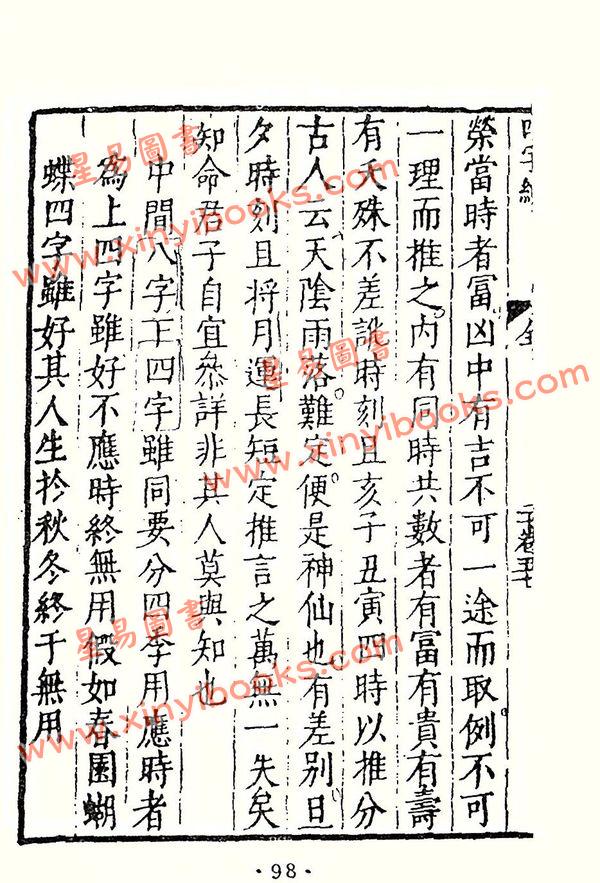 四字經
全
榮當時者冨凶中有吉不可一途而取例不可
一理而推之內有同時共數者有冨有貴有壽
有夭殊不差訛時刻且亥子丑寅四時以推分
古人云天陰雨落難定便是神仙也有差別旦
夕時刻且將月運長短定推言之萬無一失矣
知命君子自宜叅詳非其人莫與知也
中間八字王四字雖同要分四季用應時者
爲上四字雖好不應時終無用假如春園蝴
蝶四字雖好其人生扵秋冬終于無用
星易圖書
www.xinyibooks.com
星易圖書
www.xinyibooks.com
星易圖書
www.xinyibooks.com
·98·